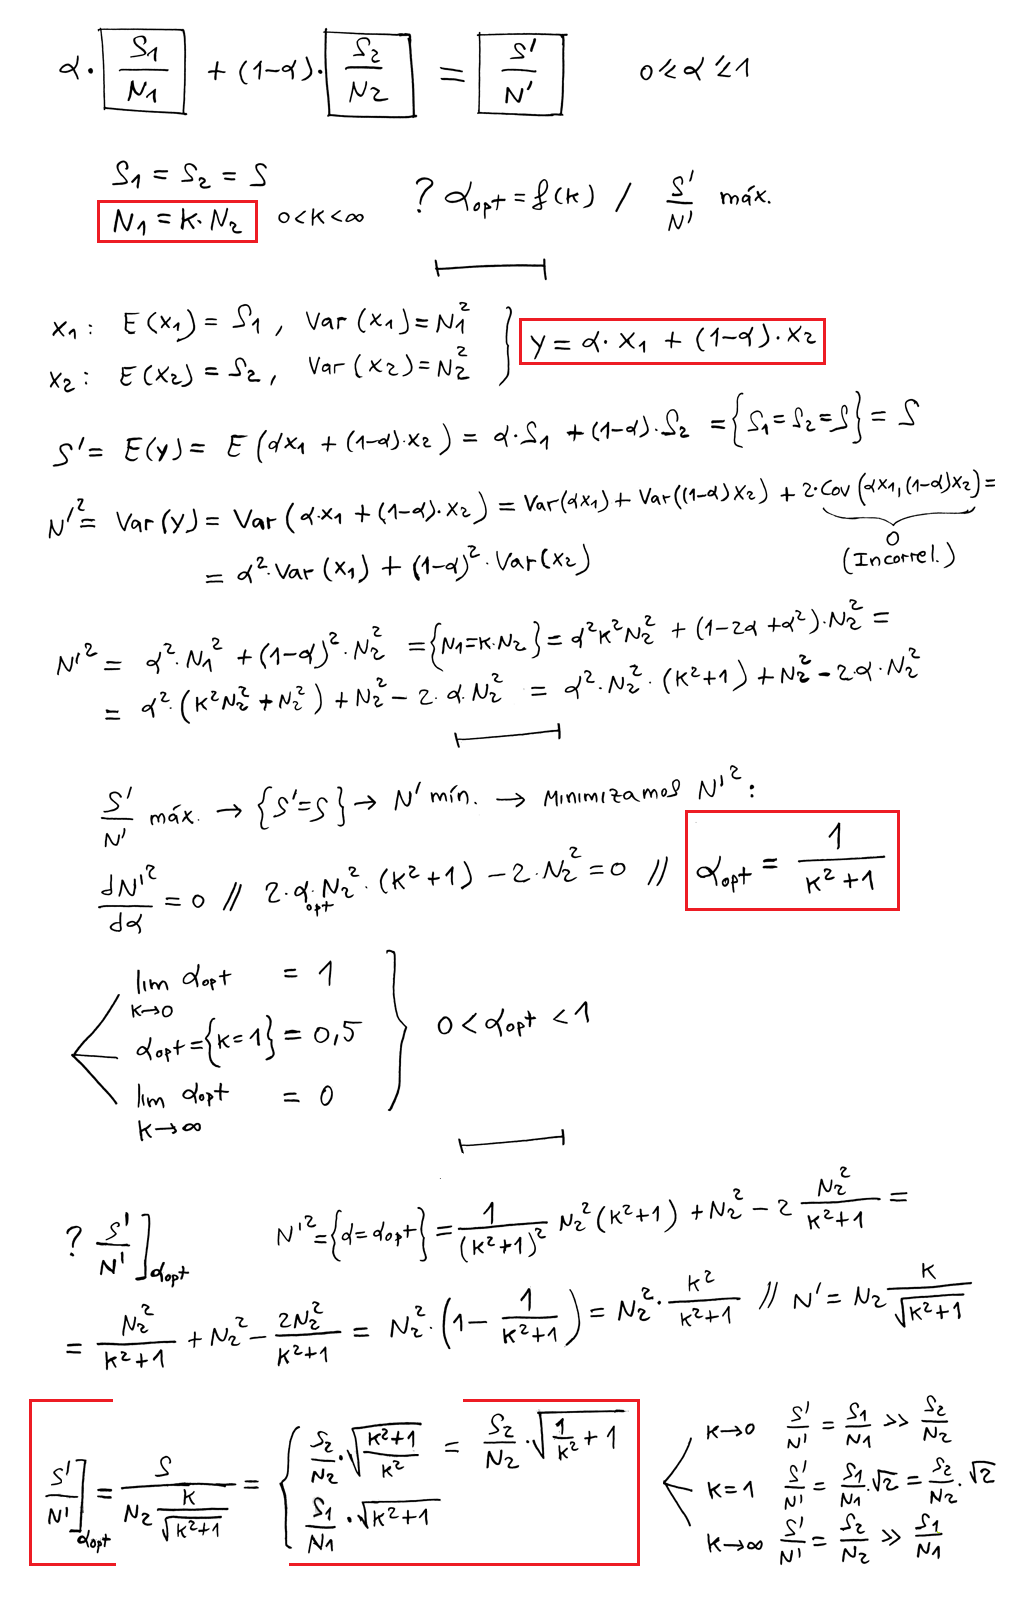 α · S1/N1 + (1-α) · S2/N2 = S'/N' 0 ≤ α ≤ 1
S1 = S2 = S
N1 = K·N2 0<K<∞ ? αopt = f(K) / S'/N' máx.
x1: E(x1) = S1, Var(x1) = N1² } y = α·x1 + (1-α)·x2
x2: E(x2) = S2, Var(x2) = N2²
S' = E(y) = E(αx1 + (1-α)·x2) = α·S1 + (1-α)·S2 = {S1=S2=S} = S
N'² = Var(y) = Var(α·x1 + (1-α)·x2) = Var(αx1) + Var((1-α)x2) + 2·Cov(αx1, (1-α)x2) =
0
(Incorrel.)
= α²·Var(x1) + (1-α)²·Var(x2)
N'² = α²·N1² + (1-α)²·N2² = {N1=K·N2} = α²K²N2² + (1-2α+α²)·N2² =
= α²·(K²N2² + N2²) + N2² - 2·α·N2² = α²·N2²·(K²+1) + N2² - 2·α·N2²
S'/N' máx. → {S'=S} → N' mín. → Minimizamos N'²:
dN'²/dα = 0 // 2·αopt·N2²·(K²+1) - 2·N2² = 0 // αopt = 1/(K²+1)
lim K→0 αopt = 1
αopt = {K=1} = 0,5 } 0 < αopt < 1
lim K→∞ αopt = 0
? S'/N']αopt N'² = {α=αopt} = 1/(K²+1)² N2²(K²+1) + N2² - 2 N2²/(K²+1) =
= N2²/(K²+1) + N2² - 2N2²/(K²+1) = N2²·(1 - 1/(K²+1)) = N2²·K²/(K²+1) // N' = N2 K/√(K²+1)
S'/N']αopt = S/(N2 K/√(K²+1)) = { S2/N2·√((K²+1)/K²) = S2/N2·√(1/K²+1)
S1/N1·√(K²+1)
K→0 S'/N' = S1/N1 >> S2/N2
K=1 S'/N' = S1/N1·√2 = S2/N2·√2
K→∞ S'/N' = S2/N2 >> S1/N1